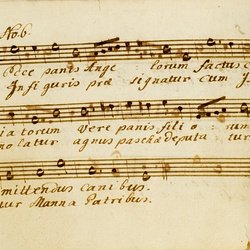 No 6.
Ecce panis Ange lorum factus c
In figuris præ signatur cum I
ia torum vere panis fili o: rum
molatur agnus paschæ deputa tur
mittendus canibus.
tur Manna Patribus.